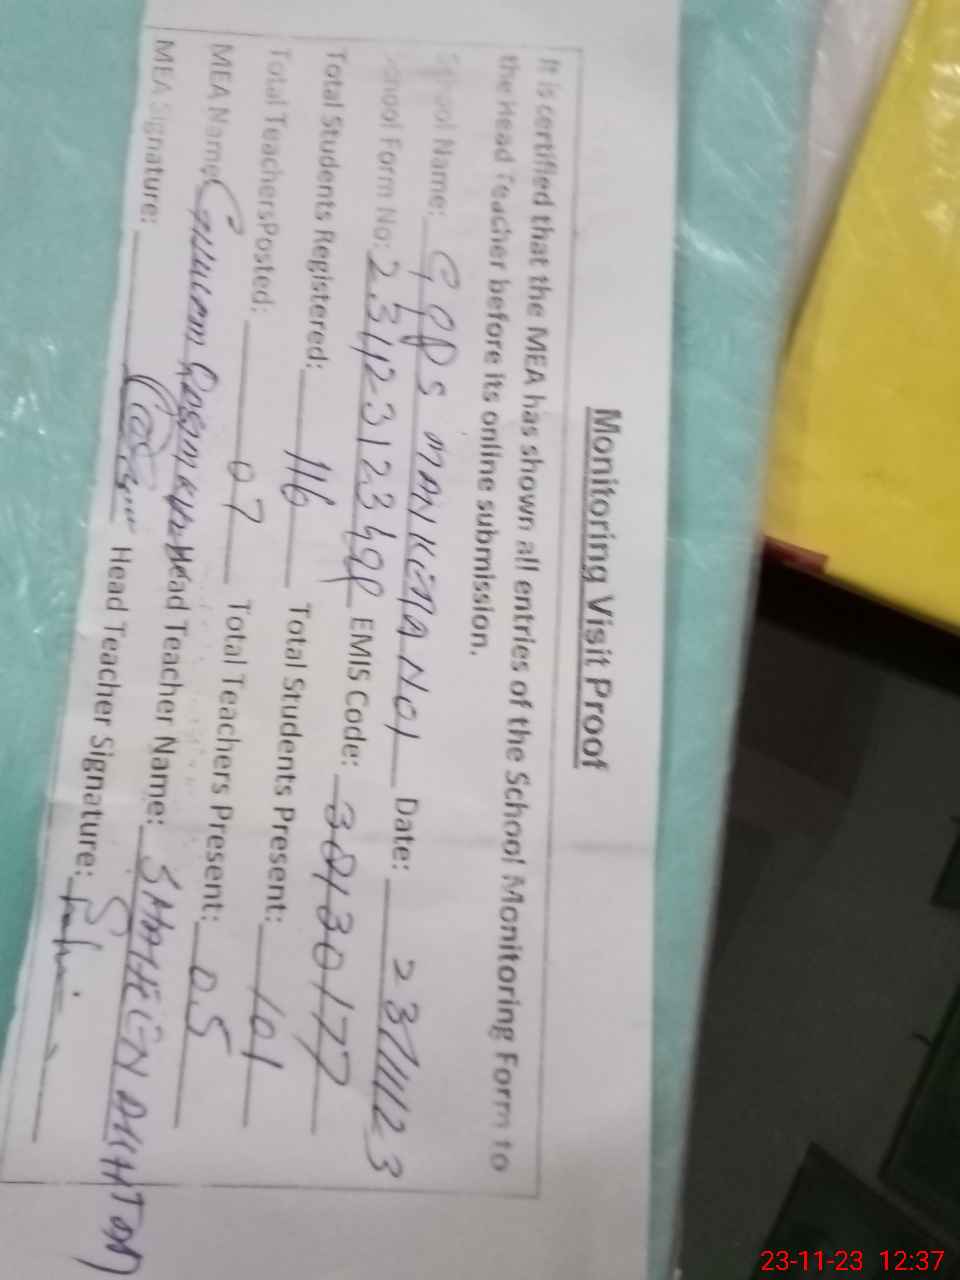 Monitoring Visit Proof
It is certified that the MEA has shown all entries of the School Monitoring Form to
the Head Teacher before its online submission.
School Name: GGPS MANKERA NO1 Date: 23/11/23
School Form No: EMIS Code: 38130177
Total Students Registered: 116 Total Students Present: 101
Total TeachersPosted: 07 Total Teachers Present: 05
MEA Name: Head Teacher Name: SHAHEEN AKHTAR
MEA Signature: Head Teacher Signature:
23-11-23 12:37